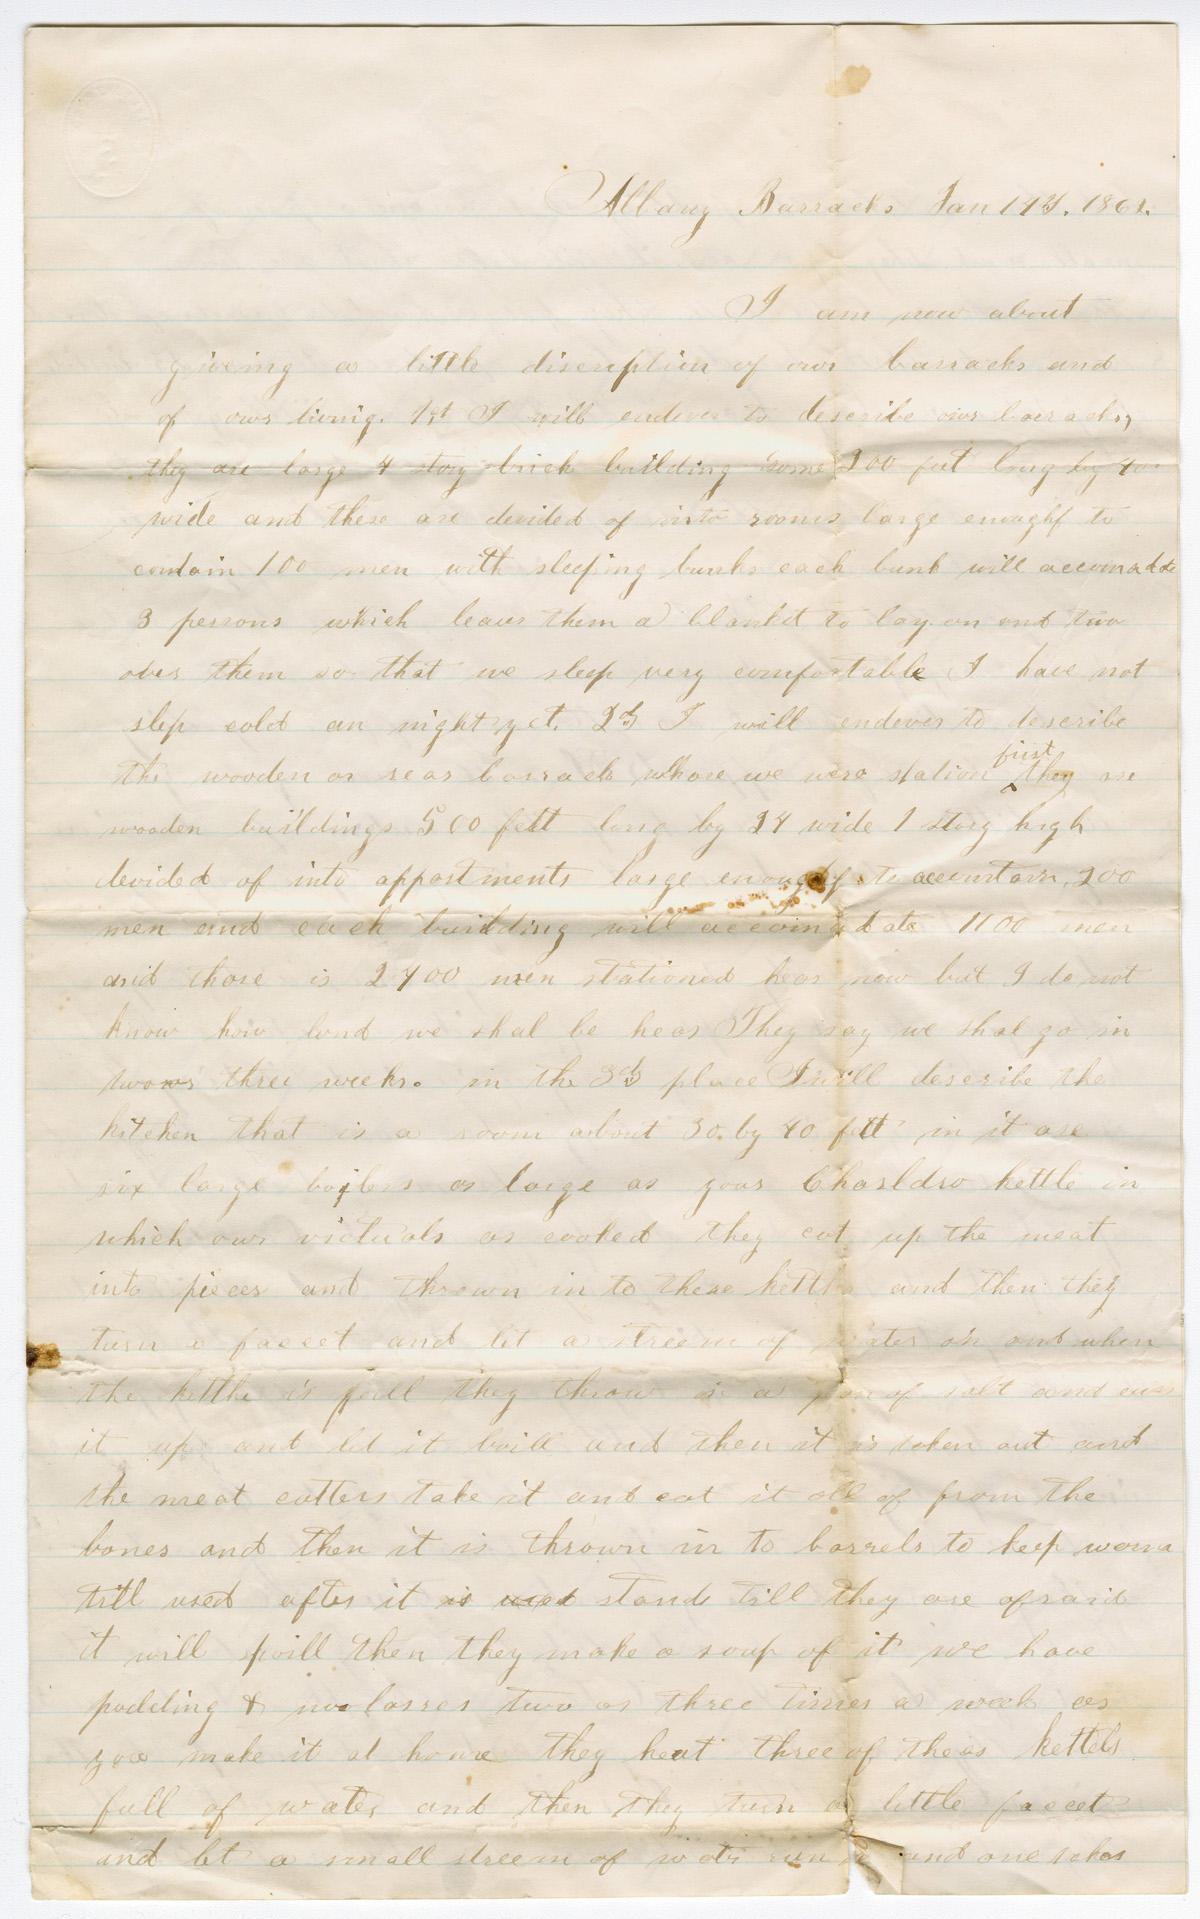 Albany Barracks Jan 19th. 1862.
I am now about
giveing a little discription of our barracks and
of our living. 1st I will endever to describe our barracks,
they are large 4 story brick building some 200 feet long by 40
wide and these are devided of into rooms large enoughf to
contain 100 men with sleeping bunks each bunk will accomadate
3 persons which leaves them a blanket to lay on and two
over them so that we sleep very comfortable I have not
slep cold an night yet. 2d I will endever to describe
the wooden or rear barrack whare we were station first they are
wooden buildings 500 fett long by 24 wide 1 story high
devided of into appartments large enoughf to 200
men and each building will accomadate 1100 men
and thare is 2400 men stationed hear now but I do not
know how lond we shal be hear They say we shal go in
two or three weeks. in the 3d place I will describe the
kitchen that is a room about 30 by 40 fett in it are
six large boilers as large as your kettle in
which our victuals ar cooked they cut up the meat
into pieces and thrown in to these kettles and then they
turn a faccet and let a stream of water on and when
the kettle is full they throw in a pan of salt and
it up and let it boill and then it is taken out and
the meat cutters take it and cut it all of from the
bones and then it is thrown in to barrels to keep warm
till used after it is used stands till they are afraid
it will spoill then they make a soup of it we have
pudding & molasses two or three times a week as
you make it at home they heat three of theas kettels
full of water and then they turn a little faccet
and let a small streem of watter run and one takes